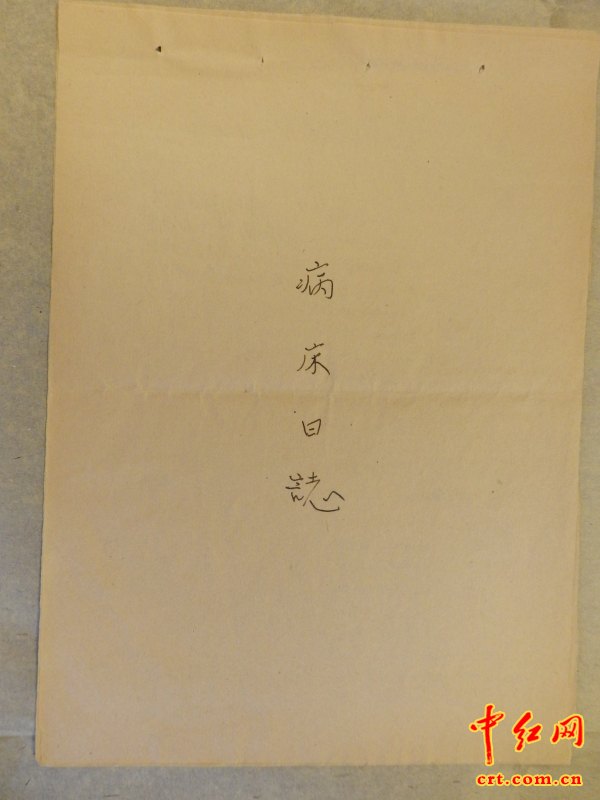 病床日誌
中红网
crt.com.cn